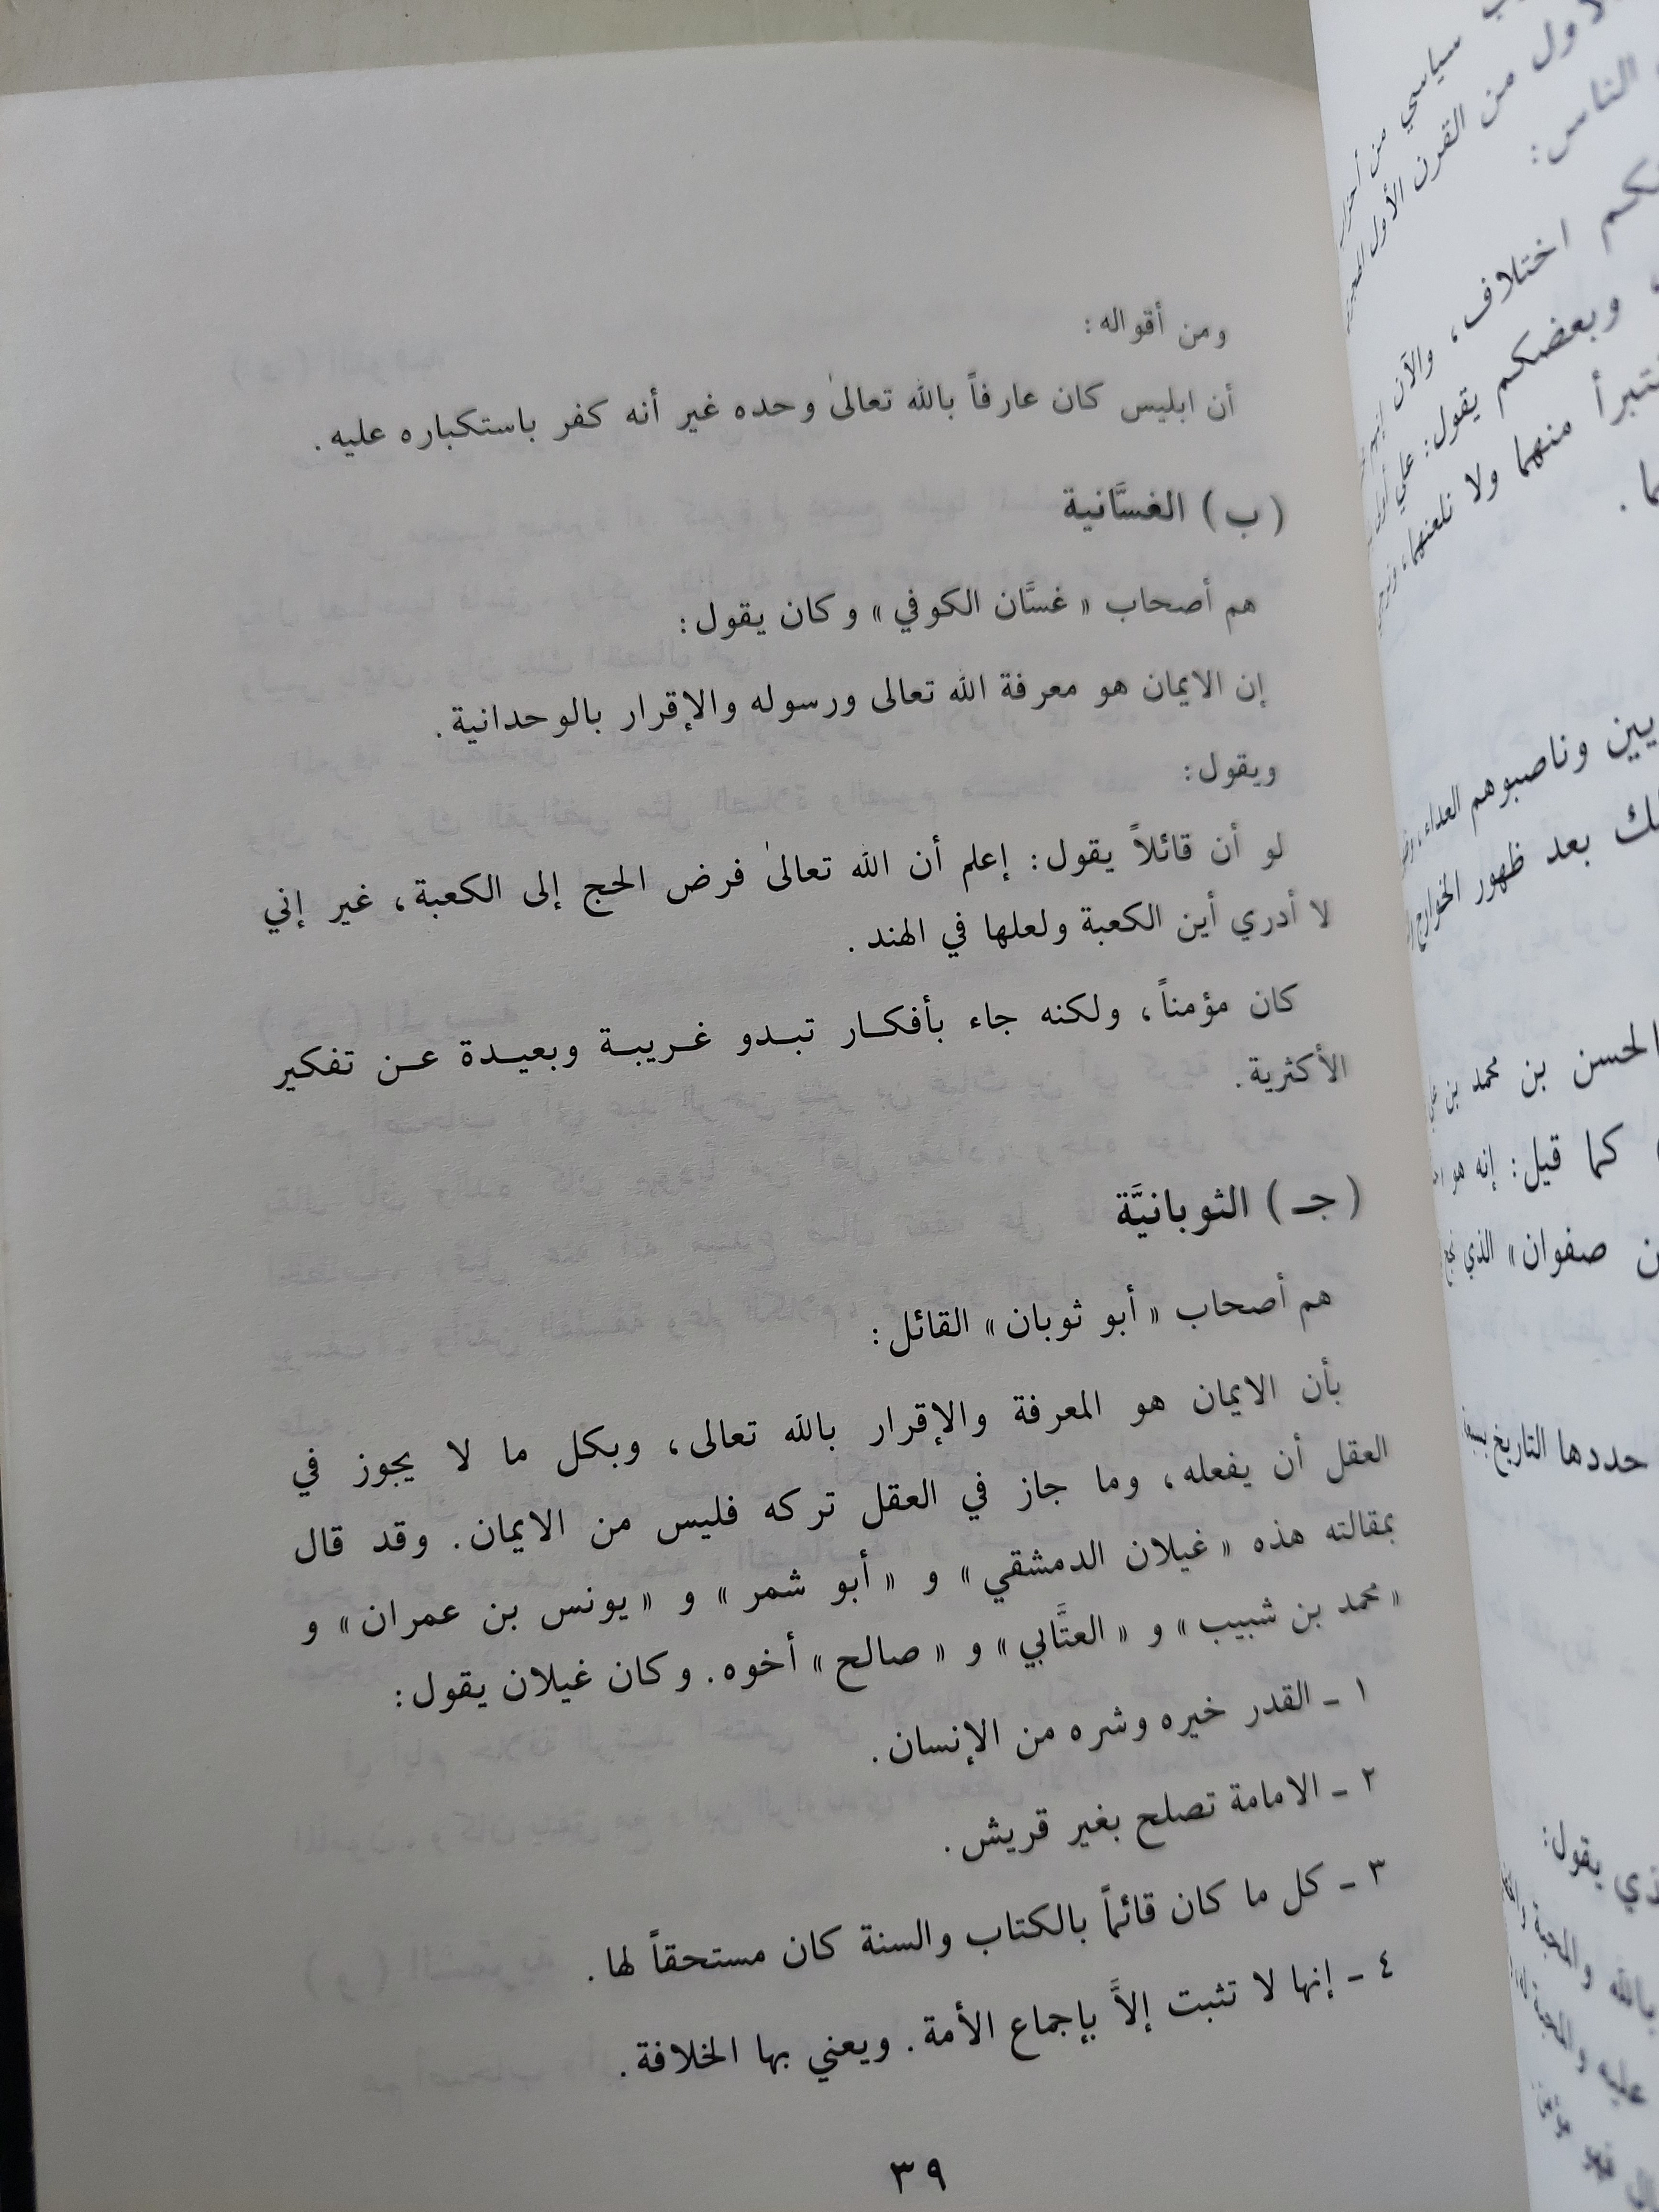 ومن أقواله:
أن ابليس كان عارفاً بالله تعالىٰ وحده غير أنه كفر باستكباره عليه.
(ب) الغسَّانية
هم أصحاب «غسَّان الكوفي» وكان يقول:
إن الايمان هو معرفة الله تعالى ورسوله والإقرار بالوحدانية.
ويقول:
لو أن قائلاً يقول: إعلم أن الله تعالىٰ فرض الحج إلى الكعبة، غير إني
لا أدري أين الكعبة ولعلها في الهند.
كان مؤمناً، ولكنه جاء بأفكار تبدو غريبة وبعيدة عن تفكير
الأكثرية.
(جـ) الثوبانيَّة
هم أصحاب «أبو ثوبان» القائل:
بأن الايمان هو المعرفة والإقرار بالله تعالى، وبكل ما لا يجوز في
العقل أن يفعله، وما جاز في العقل تركه فليس من الايمان. وقد قال
بمقالته هذه «غيلان الدمشقي» و «أبو شمر» و «يونس بن عمران» و
«محمد بن شبيب» و «العتَّابي» و «صالح» أخوه. وكان غيلان يقول:
١ - القدر خيره وشره من الإنسان.
٢ - الامامة تصلح بغير قريش.
٣ - كل ما كان قائماً بالكتاب والسنة كان مستحقاً لها.
٤ - إنها لا تثبت إلاَّ بإجماع الأمة. ويعني بها الخلافة.
٣٩
سياسي من
الأول من القرن الأول
الناس:
اختلاف، والآن
وبعضكم يقول: علي
منهما ولا نلعنهما،
وناصبوهم العداء،
بعد ظهور الخوارج
الحسن بن محمد بن
كما قيل: إنه هو
صفوان» الذي
حددها التاريخ
يقول: